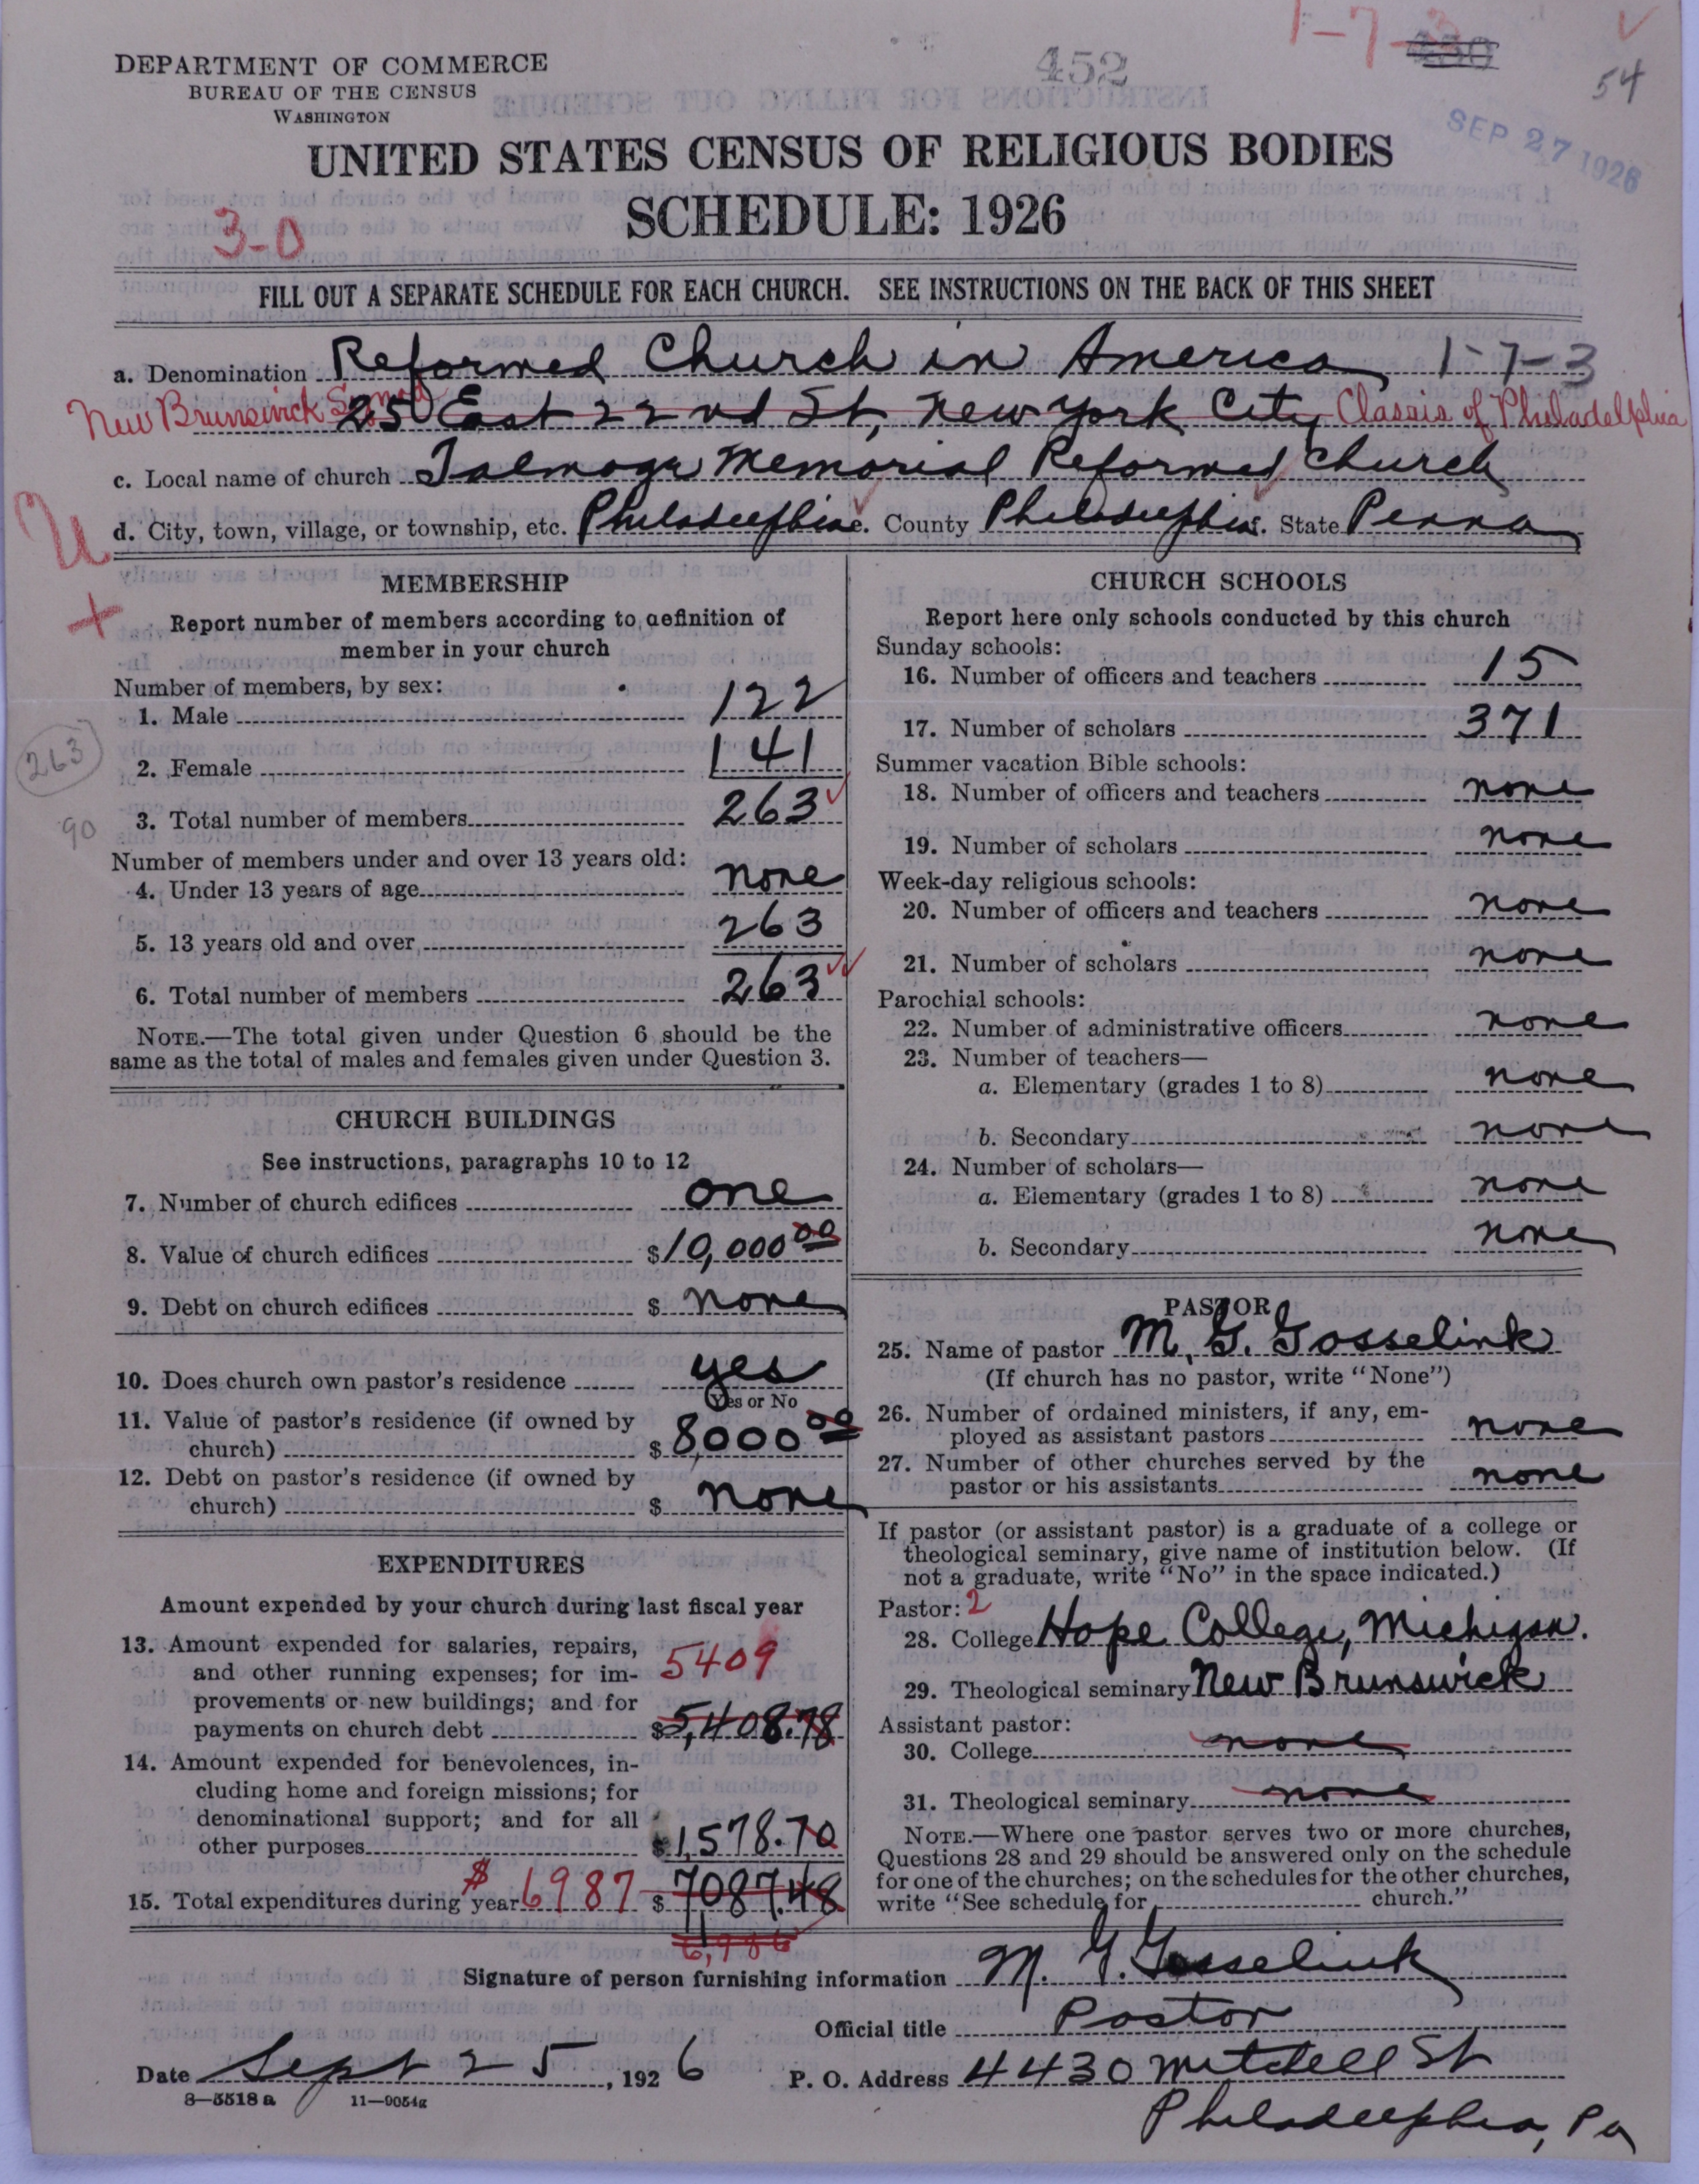 DEPARTMENT OF COMMERCE
BUREAU OF THE CENSUS
WASHINGTON
452
1-7-3
54
SEP 27 1926
UNITED STATES CENSUS OF RELIGIOUS BODIES
SCHEDULE: 1926
3-0
FILL OUT A SEPARATE SCHEDULE FOR EACH CHURCH. SEE INSTRUCTIONS ON THE BACK OF THIS SHEET
a. Denomination Reformed Church in America 1-7-3
New Brunswick Synod 25 East 22nd St, New York City Classis of Philadelphia
c. Local name of church Talmage Memorial Reformed Church
d. City, town, village, or township, etc. Philadelphia. County Philadelphia. State Penna
U
+
MEMBERSHIP
Report number of members according to definition of
member in your church
Number of members, by sex:
1. Male 122
2. Female 141
263
3. Total number of members 263
90
Number of members under and over 13 years old:
4. Under 13 years of age none
5. 13 years old and over 263
6. Total number of members 263
NOTE.—The total given under Question 6 should be the
same as the total of males and females given under Question 3.
CHURCH BUILDINGS
See instructions, paragraphs 10 to 12
7. Number of church edifices one
8. Value of church edifices $10,000 00
9. Debt on church edifices $ none
10. Does church own pastor's residence yes
Yes or No
11. Value of pastor's residence (if owned by
church) $ 8,000 00
12. Debt on pastor's residence (if owned by
church) $ none
EXPENDITURES
Amount expended by your church during last fiscal year
13. Amount expended for salaries, repairs,
and other running expenses; for im- 5409
provements or new buildings; and for
payments on church debt $5,408.78
14. Amount expended for benevolences, in-
cluding home and foreign missions; for
denominational support; and for all
other purposes $1,578.70
15. Total expenditures during year $ 6987 $ 7087.48
6,986
CHURCH SCHOOLS
Report here only schools conducted by this church
Sunday schools:
16. Number of officers and teachers 15
17. Number of scholars 371
Summer vacation Bible schools:
18. Number of officers and teachers none
19. Number of scholars none
Week-day religious schools:
20. Number of officers and teachers none
21. Number of scholars none
Parochial schools:
22. Number of administrative officers none
23. Number of teachers—
a. Elementary (grades 1 to 8) none
b. Secondary none
24. Number of scholars—
a. Elementary (grades 1 to 8) none
b. Secondary none
PASTOR
25. Name of pastor M. G. Gosselink
(If church has no pastor, write "None")
26. Number of ordained ministers, if any, em-
ployed as assistant pastors none
27. Number of other churches served by the
pastor or his assistants none
If pastor (or assistant pastor) is a graduate of a college or
theological seminary, give name of institution below. (If
not a graduate, write "No" in the space indicated.)
Pastor: 2
28. College Hope College, Michigan.
29. Theological seminary New Brunswick
Assistant pastor:
30. College none
31. Theological seminary none
NOTE.—Where one pastor serves two or more churches,
Questions 28 and 29 should be answered only on the schedule
for one of the churches; on the schedules for the other churches,
write "See schedule for church."
Signature of person furnishing information M. G. Gosselink
Official title Pastor
Date Sept 25, 1926 P. O. Address 4430 Mitchell St
8—5518 a 11—9054g
Philadelphia, Pa